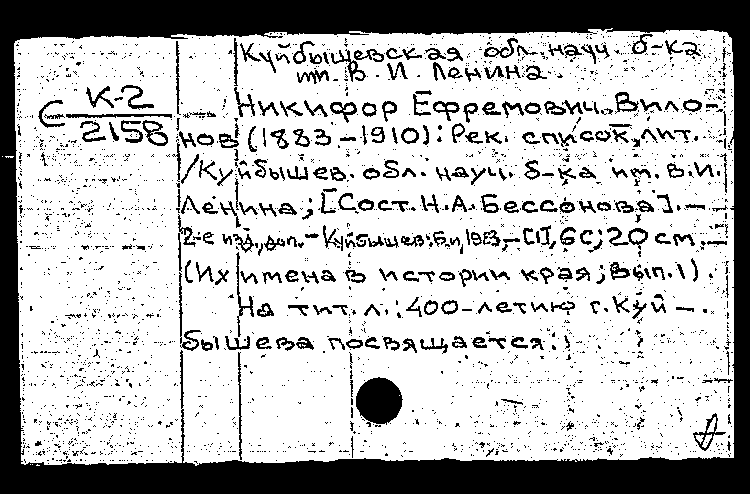 Куйбышевская обл. науч. б-ка
им. В. И. Ленина.
С К-2
2158
Никифор Ефремович Вило-
нов (1883-1910): Рек. список лит.
/Куйбышев. обл. науч. б-ка им. В.И.
Ленина; [Сост. Н.А. Бессонова]. —
2-е изд., доп. — Куйбышев: Б.и, 1983, — [1], 6 с; 20 см. —
(Их имена в истории края; Вып. 1).
На тит. л.: 400-летию г. Куй —
бышева посвящается.